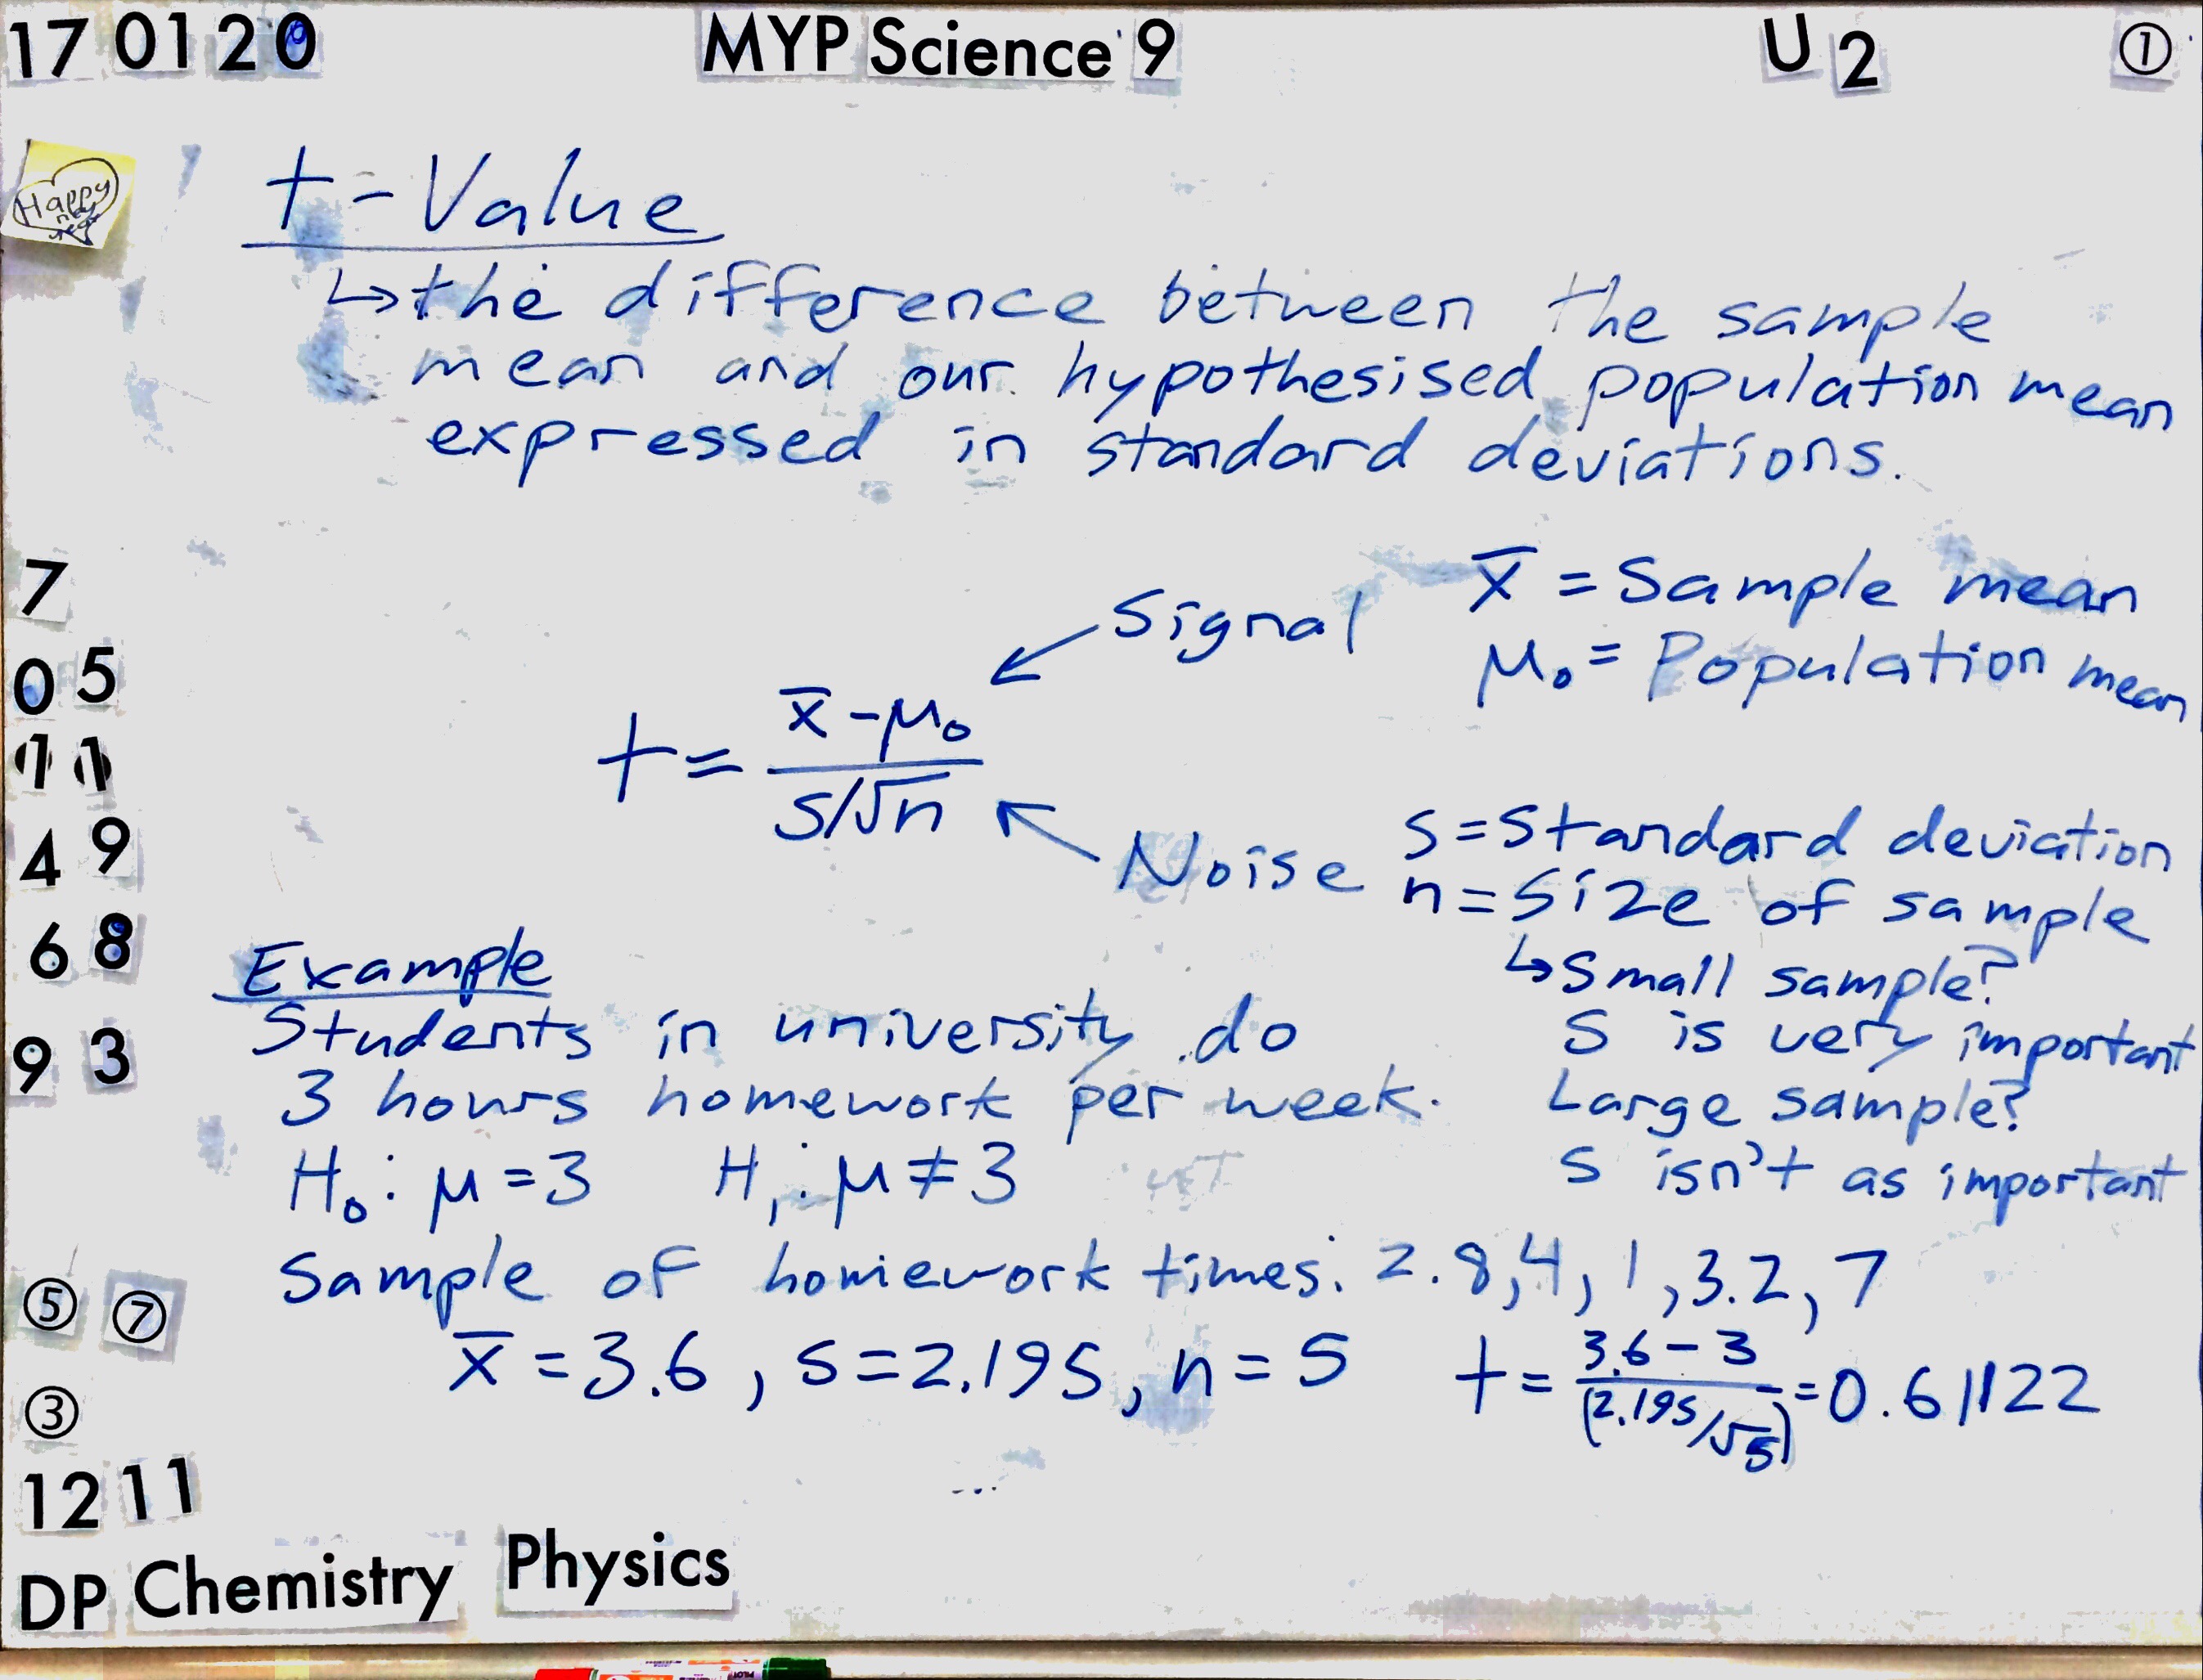 17 01 20 MYP Science 9 U 2 ①
Happy new year
t-Value
↳the difference between the sample
mean and our hypothesised population mean
expressed in standard deviations.
x̄ = Sample mean
μ₀ = Population mean
Signal
t = (x̄ - μ₀) / (s/√n)
Noise
s = standard deviation
n = size of sample
↳Small sample?
s is very important
Large sample?
s isn't as important
Example
Students in university do
3 hours homework per week.
H₀: μ = 3 H₁: μ ≠ 3
Sample of homework times: 2.8, 4, 1, 3.2, 7
x̄ = 3.6, s = 2.195, n = 5 t = (3.6 - 3) / (2.195/√5) = 0.61122
7
0 5
11
4 9
6 8
9 3
⑤ ⑦
③
12 11
DP Chemistry Physics
PILOT